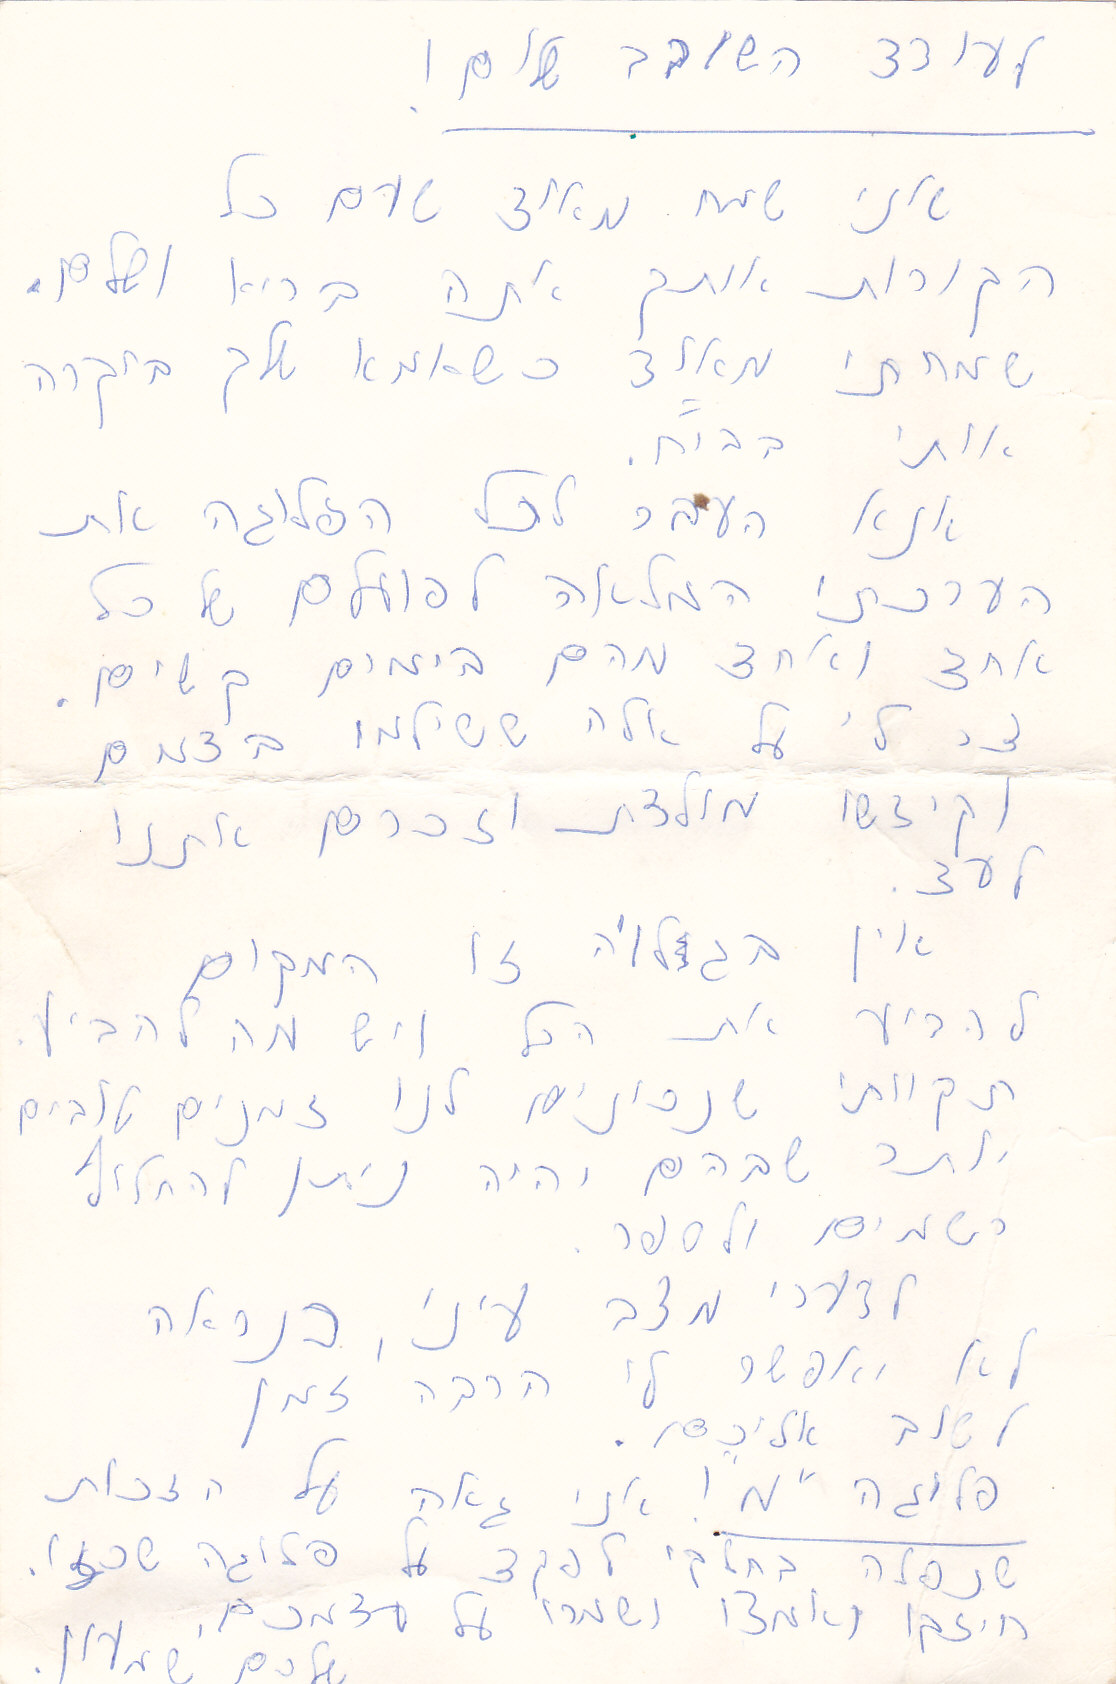 לעודד השובב שלום!
אני שמח מאוד שעם כל
הקורות אותך אתה בריא ושלם.
שמחתי מאוד כשאמא שלך ביקרה
אותי בבי"ח.
אנא העבר לכל הפלוגה את
הערכתי המלאה לפועלם של כל
אחד ואחד מהם בימים קשים.
צר לי על אלה ששילמו בדמם
וקידשו מולדת וזכרם אתנו
לעד.
אין בגלויה זו המקום
להביע את הכל ויש מה להביע.
תקוותי שנכונים לנו זמנים טובים
יותר שבהם יהיה ניתן להחליף
רשמים ולספר.
לצערי מצב עיני, כנראה
לא יאפשר לי הרבה זמן
לשוב אליכם.
פלוגה "מ"! אני גאה על הזכות
שנפלה בחלקי לפקד על פלוגה שכזו.
חיזקו ואמצו ושמרו על עצמכם,
שלכם שמעון.